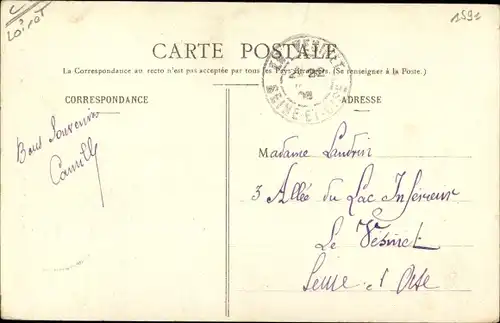 Loiret
1591
CARTE POSTALE
La Correspondance au recto n'est pas acceptée par tous les Pays étrangers. (Se renseigner à la Poste.)
CORRESPONDANCE
ADRESSE
SEINE-ET-OISE
Bons Souvenirs
Camille
Madame Landrin
3 Allée du Lac Inférieur
Le Vésinet
Seine et Oise